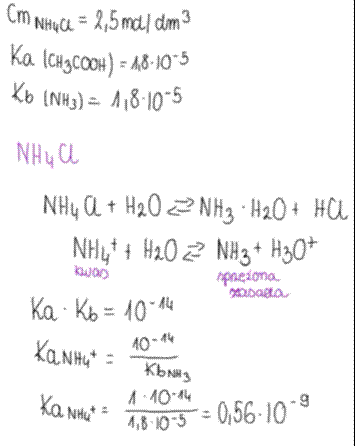 Cm NH₄Cl = 2,5 mol/dm³
Ka (CH₃COOH) = 1,8·10⁻⁵
Kb (NH₃) = 1,8·10⁻⁵
NH₄Cl
NH₄Cl + H₂O ⇌ NH₃·H₂O + HCl
NH₄⁺ + H₂O ⇌ NH₃ + H₃O⁺
kwas sprzężona
zasada
Ka · Kb = 10⁻¹⁴
Ka NH₄⁺ = 10⁻¹⁴ / Kb NH₃
Ka NH₄⁺ = 1·10⁻¹⁴ / 1,8·10⁻⁵ = 0,56·10⁻⁹